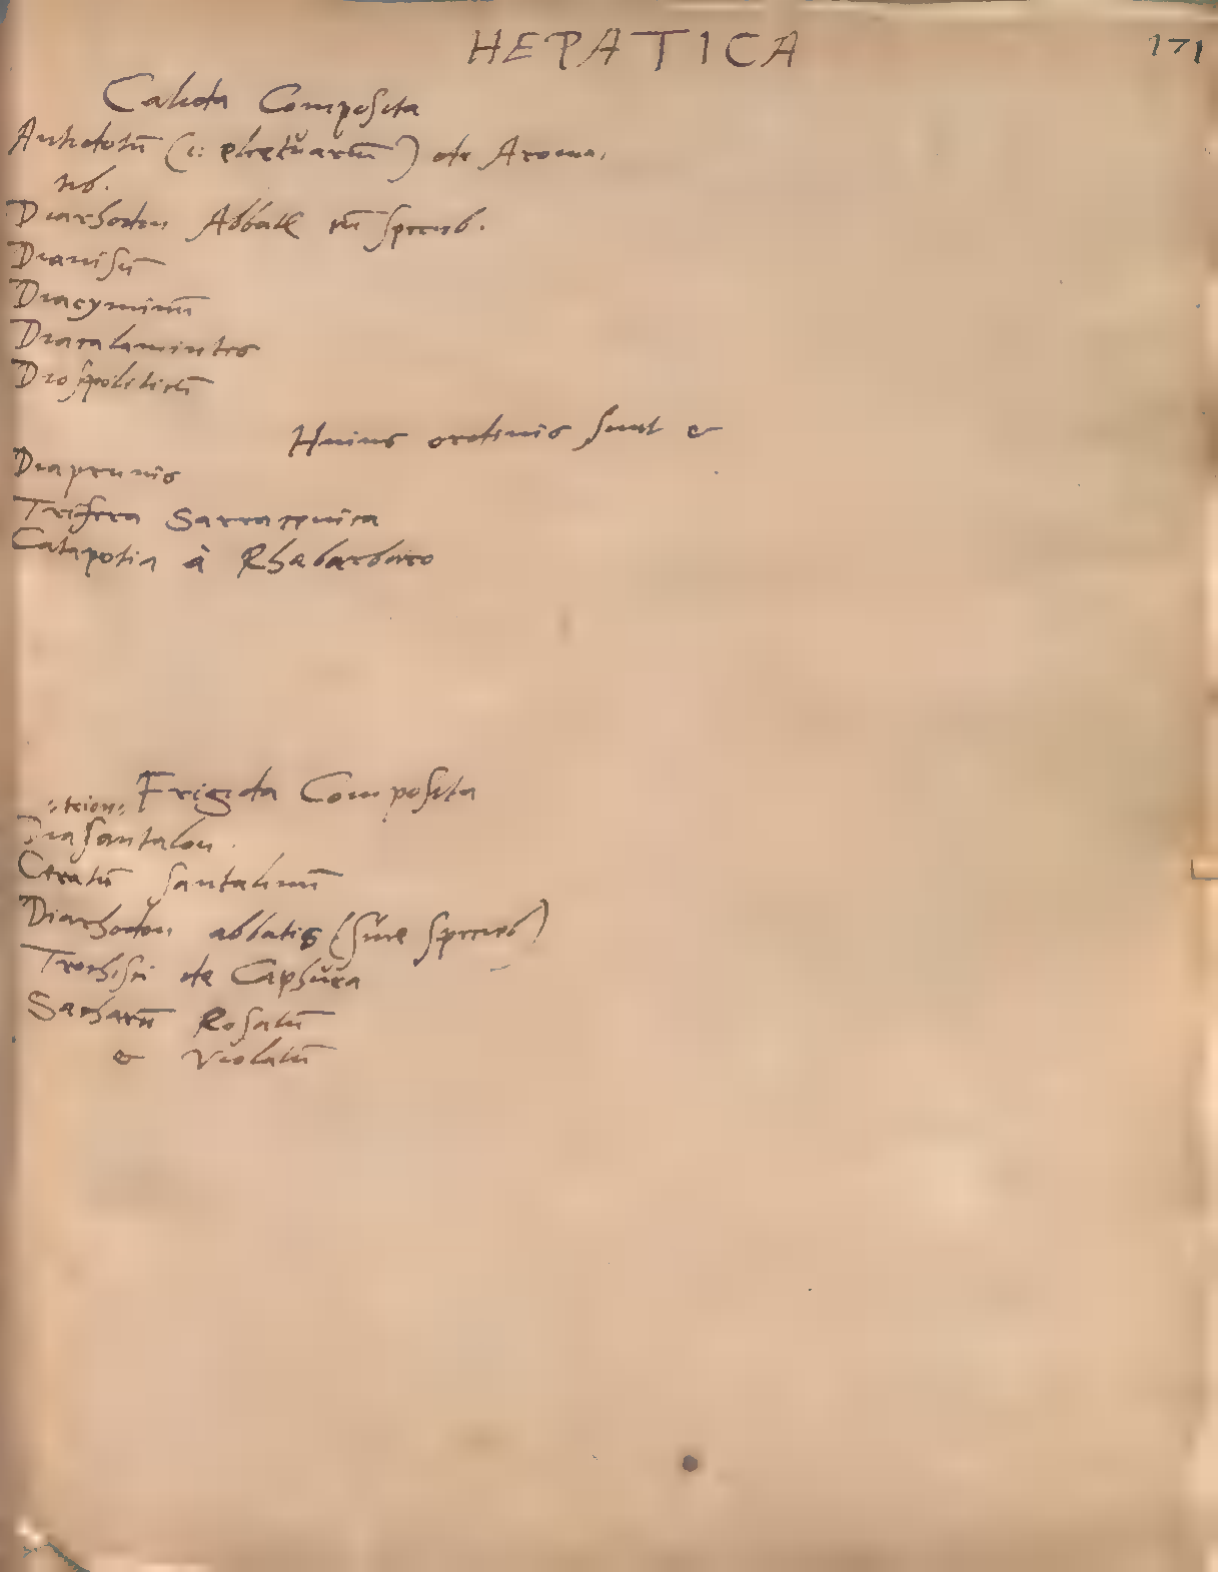 HEPATICA 171
Calida Composita
Antidotū (i: electuariū) de Aroma,
tib.
Diarhodon Abbatis cū specieb.
Dianisū
Diacyminū
Diacalaminthes
Diospoliticū
Huius ordinis sunt &
Diaprunis
Trifera Sarracenica
Catapotia à Rhabarbaro
Frigida Composita
Diasantalon
Ceratū santalinū
Diarhodon abbatis (sine specieb)
Trochisci de Caphura
Sacharū Rosatū
& Violatū